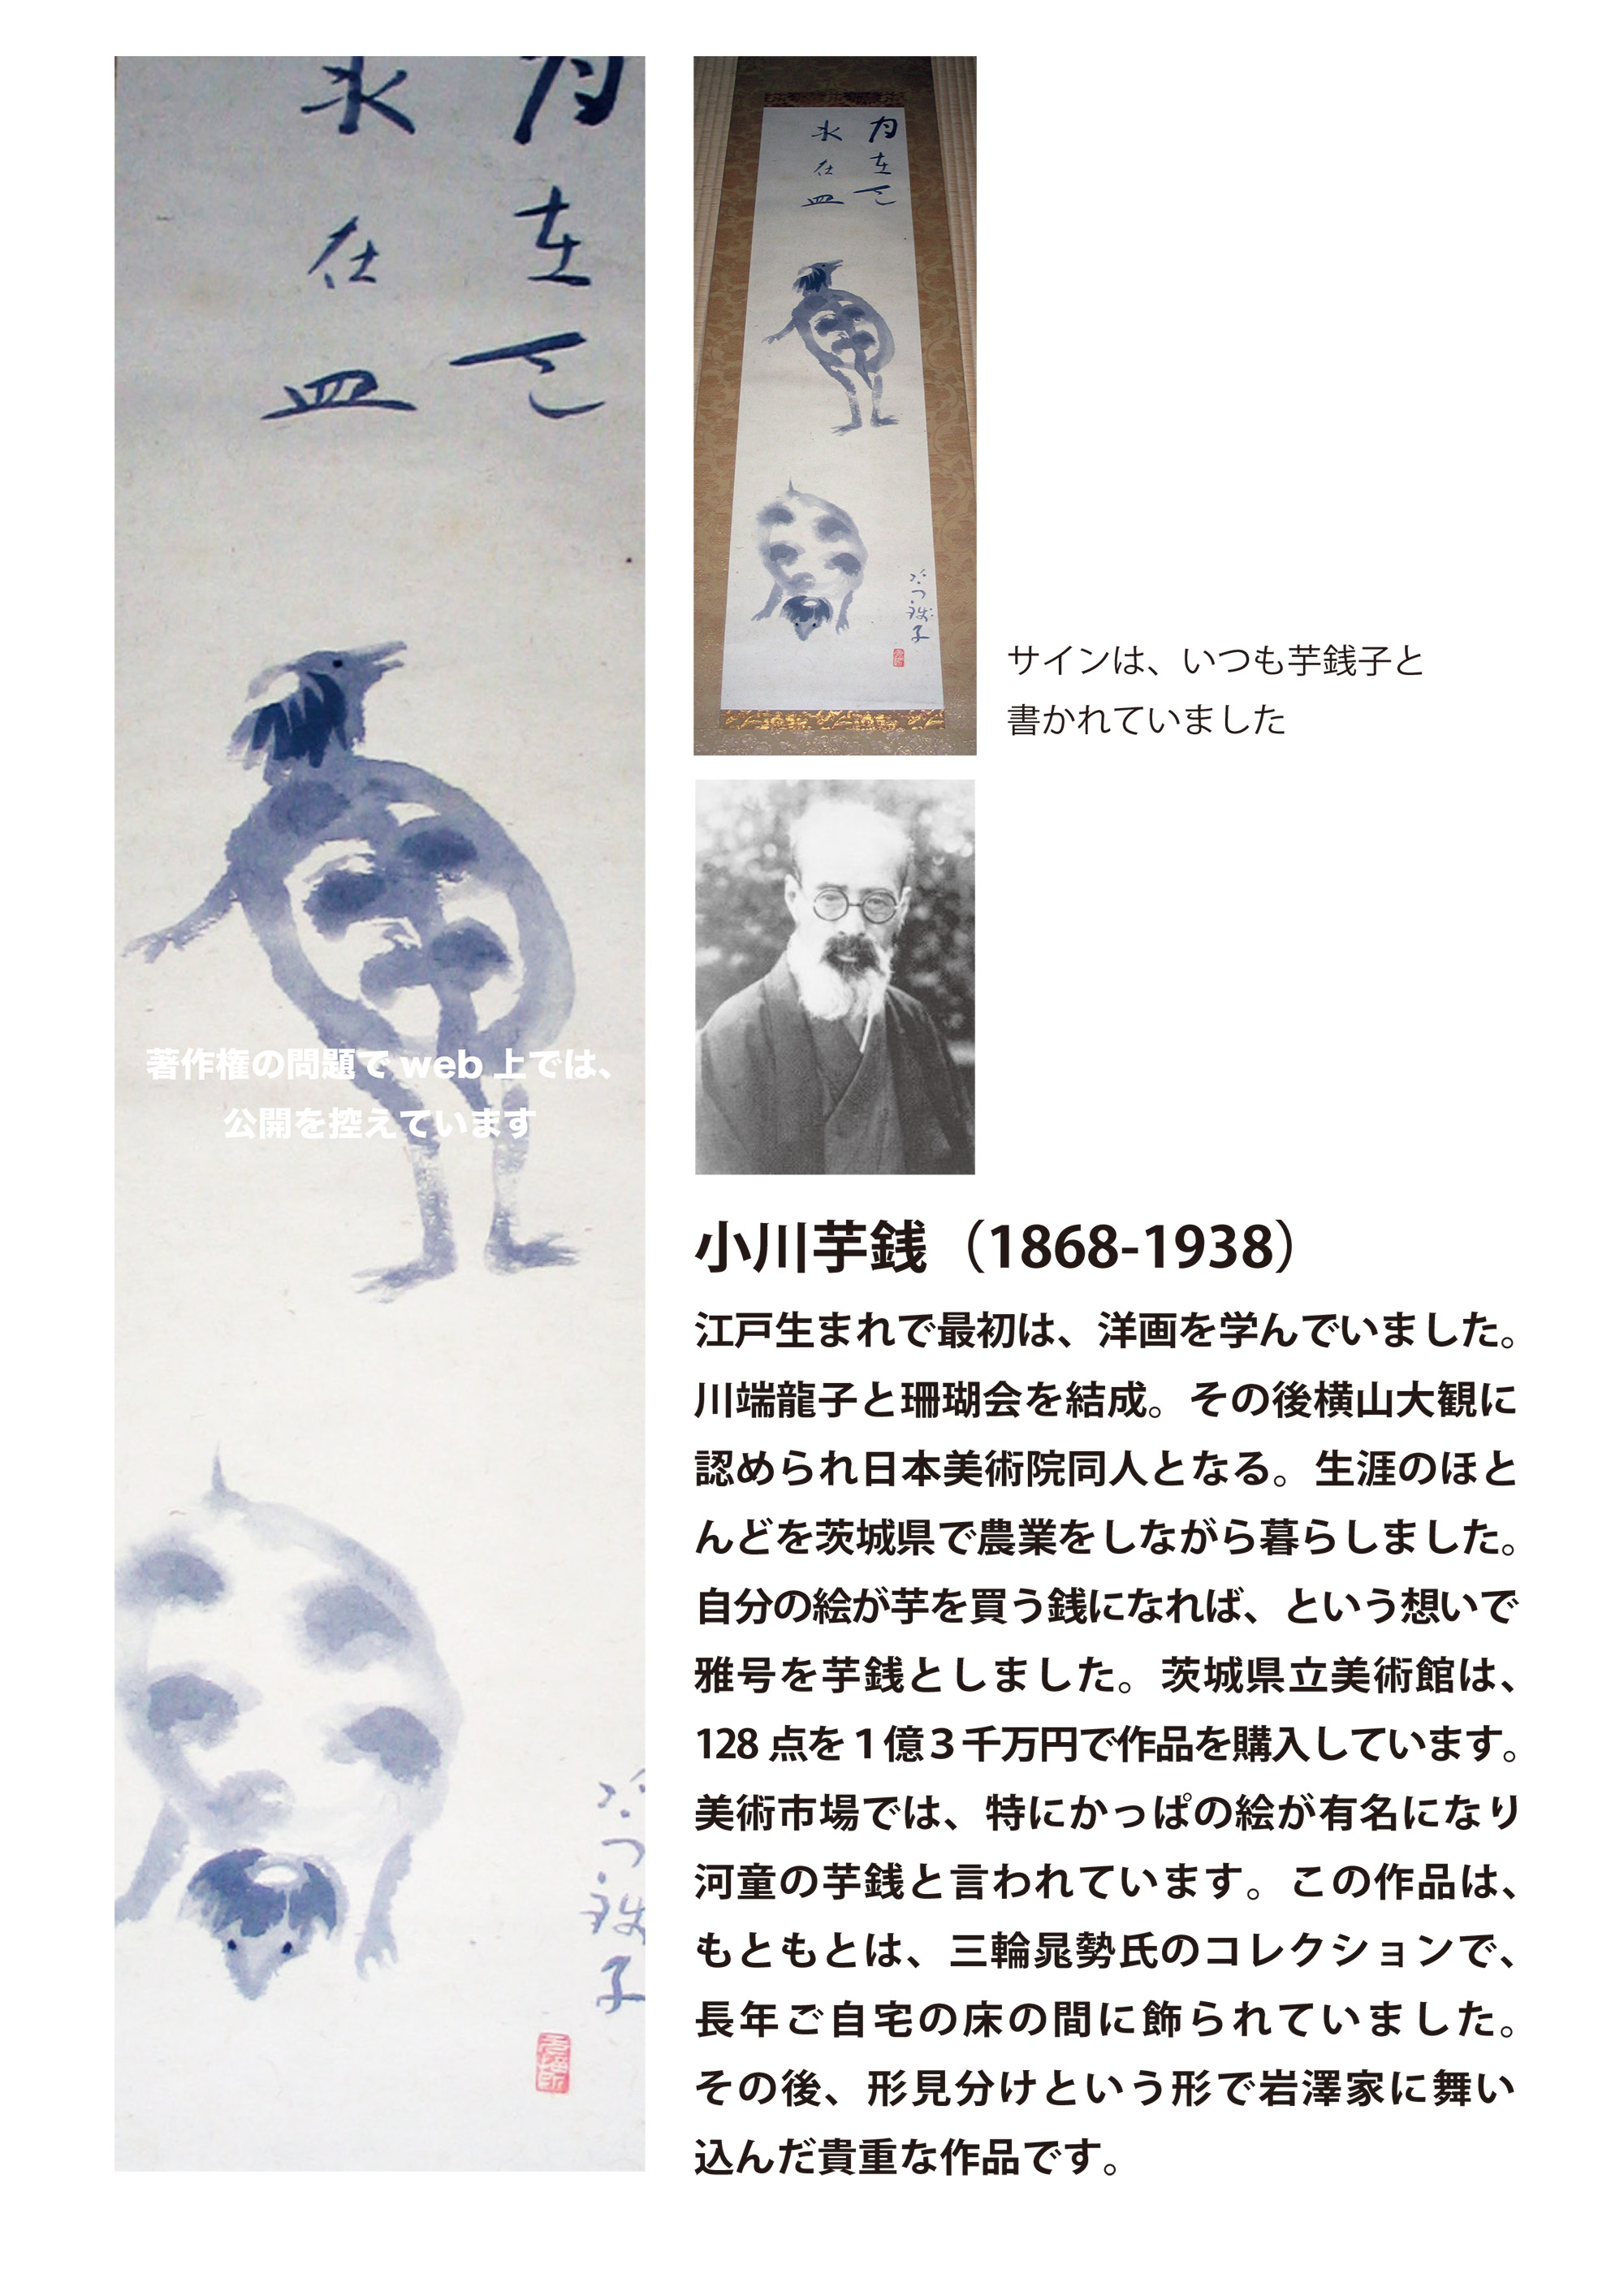 月在天
水在皿
芋銭子
著作権の問題で web 上では、
公開を控えています
サインは、いつも芋銭子と
書かれていました
小川芋銭（1868-1938）
江戸生まれで最初は、洋画を学んでいました。
川端龍子と珊瑚会を結成。その後横山大観に
認められ日本美術院同人となる。生涯のほと
んどを茨城県で農業をしながら暮らしました。
自分の絵が芋を買う銭になれば、という想いで
雅号を芋銭としました。茨城県立美術館は、
128 点を１億３千万円で作品を購入しています。
美術市場では、特にかっぱの絵が有名になり
河童の芋銭と言われています。この作品は、
もともとは、三輪晁勢氏のコレクションで、
長年ご自宅の床の間に飾られていました。
その後、形見分けという形で岩澤家に舞い
込んだ貴重な作品です。